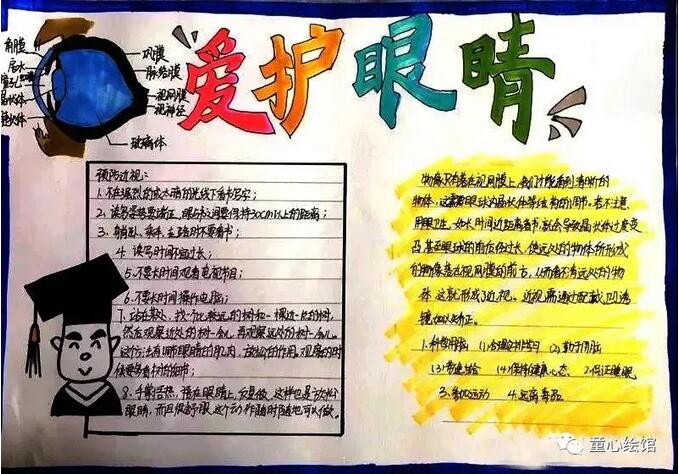 爱护眼睛
角膜
房水
瞳孔
晶状体
睫状体
巩膜
脉络膜
视网膜
视神经
玻璃体
预防近视：
1、不在强烈的或太暗的光线下看书写字；
2、读写姿势要端正，眼与书之间要保持30cm以上的距离；
3、躺卧、乘车、走路时不要看书；
4、读写时间不宜过长；
5、不要长时间观看电视节目；
6、不要长时间操作电脑；
7、站在某处，找一个比较远的树和一棵近的树，
然后观察近处的树一会儿，再观察远处的树一会儿。
这个方法有调节眼睛的肌肉，放松的作用，观察的时
候要专看树的细节；
8、手掌搭热，捂在眼睛上，反复做，这样也是放松
眼睛，而且保舒服，这个动作随时随地可以做。
物像只有落在视网膜上，我们才能看到清晰的
物体，这需要眼球内晶状体等结构的调节。若不注意
用眼卫生，如长时间近距离看书就会导致晶状体过度变
凸甚至眼球的前后径过长，使远处的物体所形成
的物像落在视网膜的前方，从而看不清远处的物
体，这就形成了近视。近视需通过配戴凹透
镜加以矫正。
1.科学用脑 (1)合理安排学习 (2)勤于用脑
(3)营造 (4)保持健康心态 2.保证睡眠
3.参加运动 4.远离毒品
童心绘馆